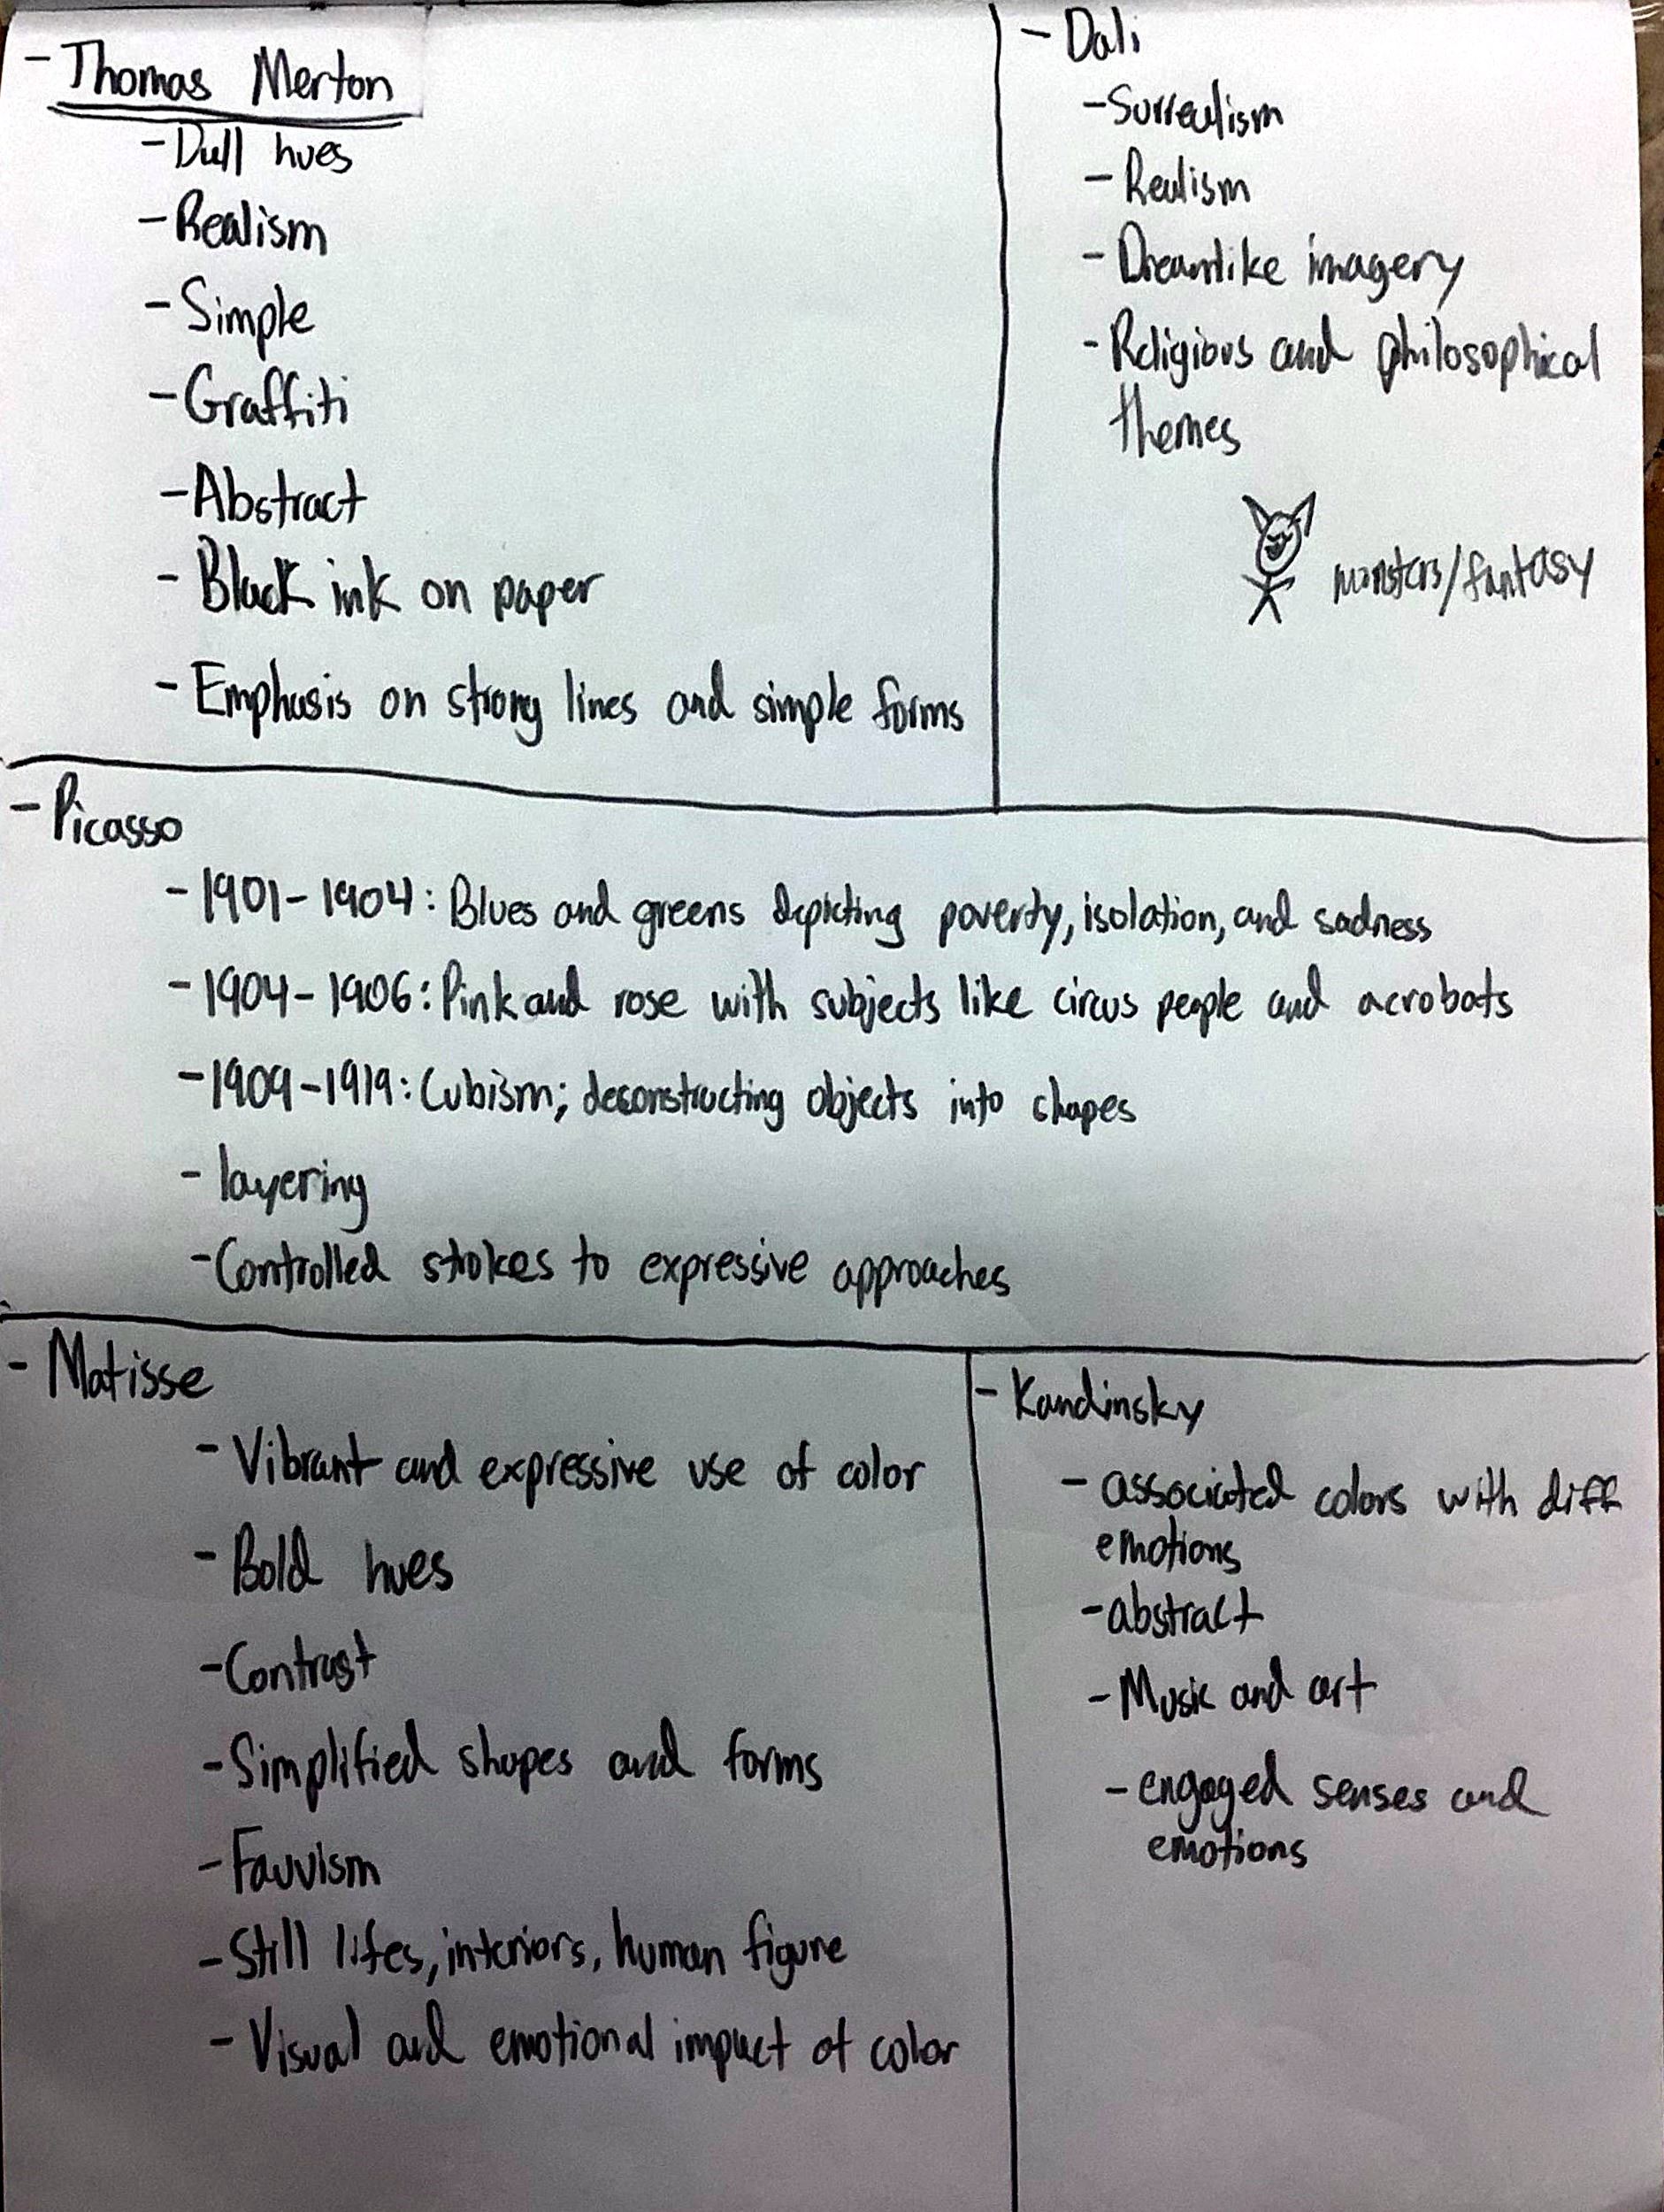 - Thomas Merton
- Dull hues
- Realism
- Simple
- Graffiti
- Abstract
- Black ink on paper
- Emphasis on strong lines and simple forms
- Dali
- Surrealism
- Realism
- Dreamlike imagery
- Religious and philosophical
themes
monsters/fantasy
- Picasso
- 1901-1904: Blues and greens depicting poverty, isolation, and sadness
- 1904-1906: Pink and rose with subjects like circus people and acrobats
- 1909-1919: Cubism; deconstructing objects into shapes
- layering
- Controlled strokes to expressive approaches
- Matisse
- Vibrant and expressive use of color
- Bold hues
- Contrast
- Simplified shapes and forms
- Fauvism
- Still lifes, interiors, human figure
- Visual and emotional impact of color
- Kandinsky
- associated colors with diff
emotions
- abstract
- Music and art
- engaged senses and
emotions